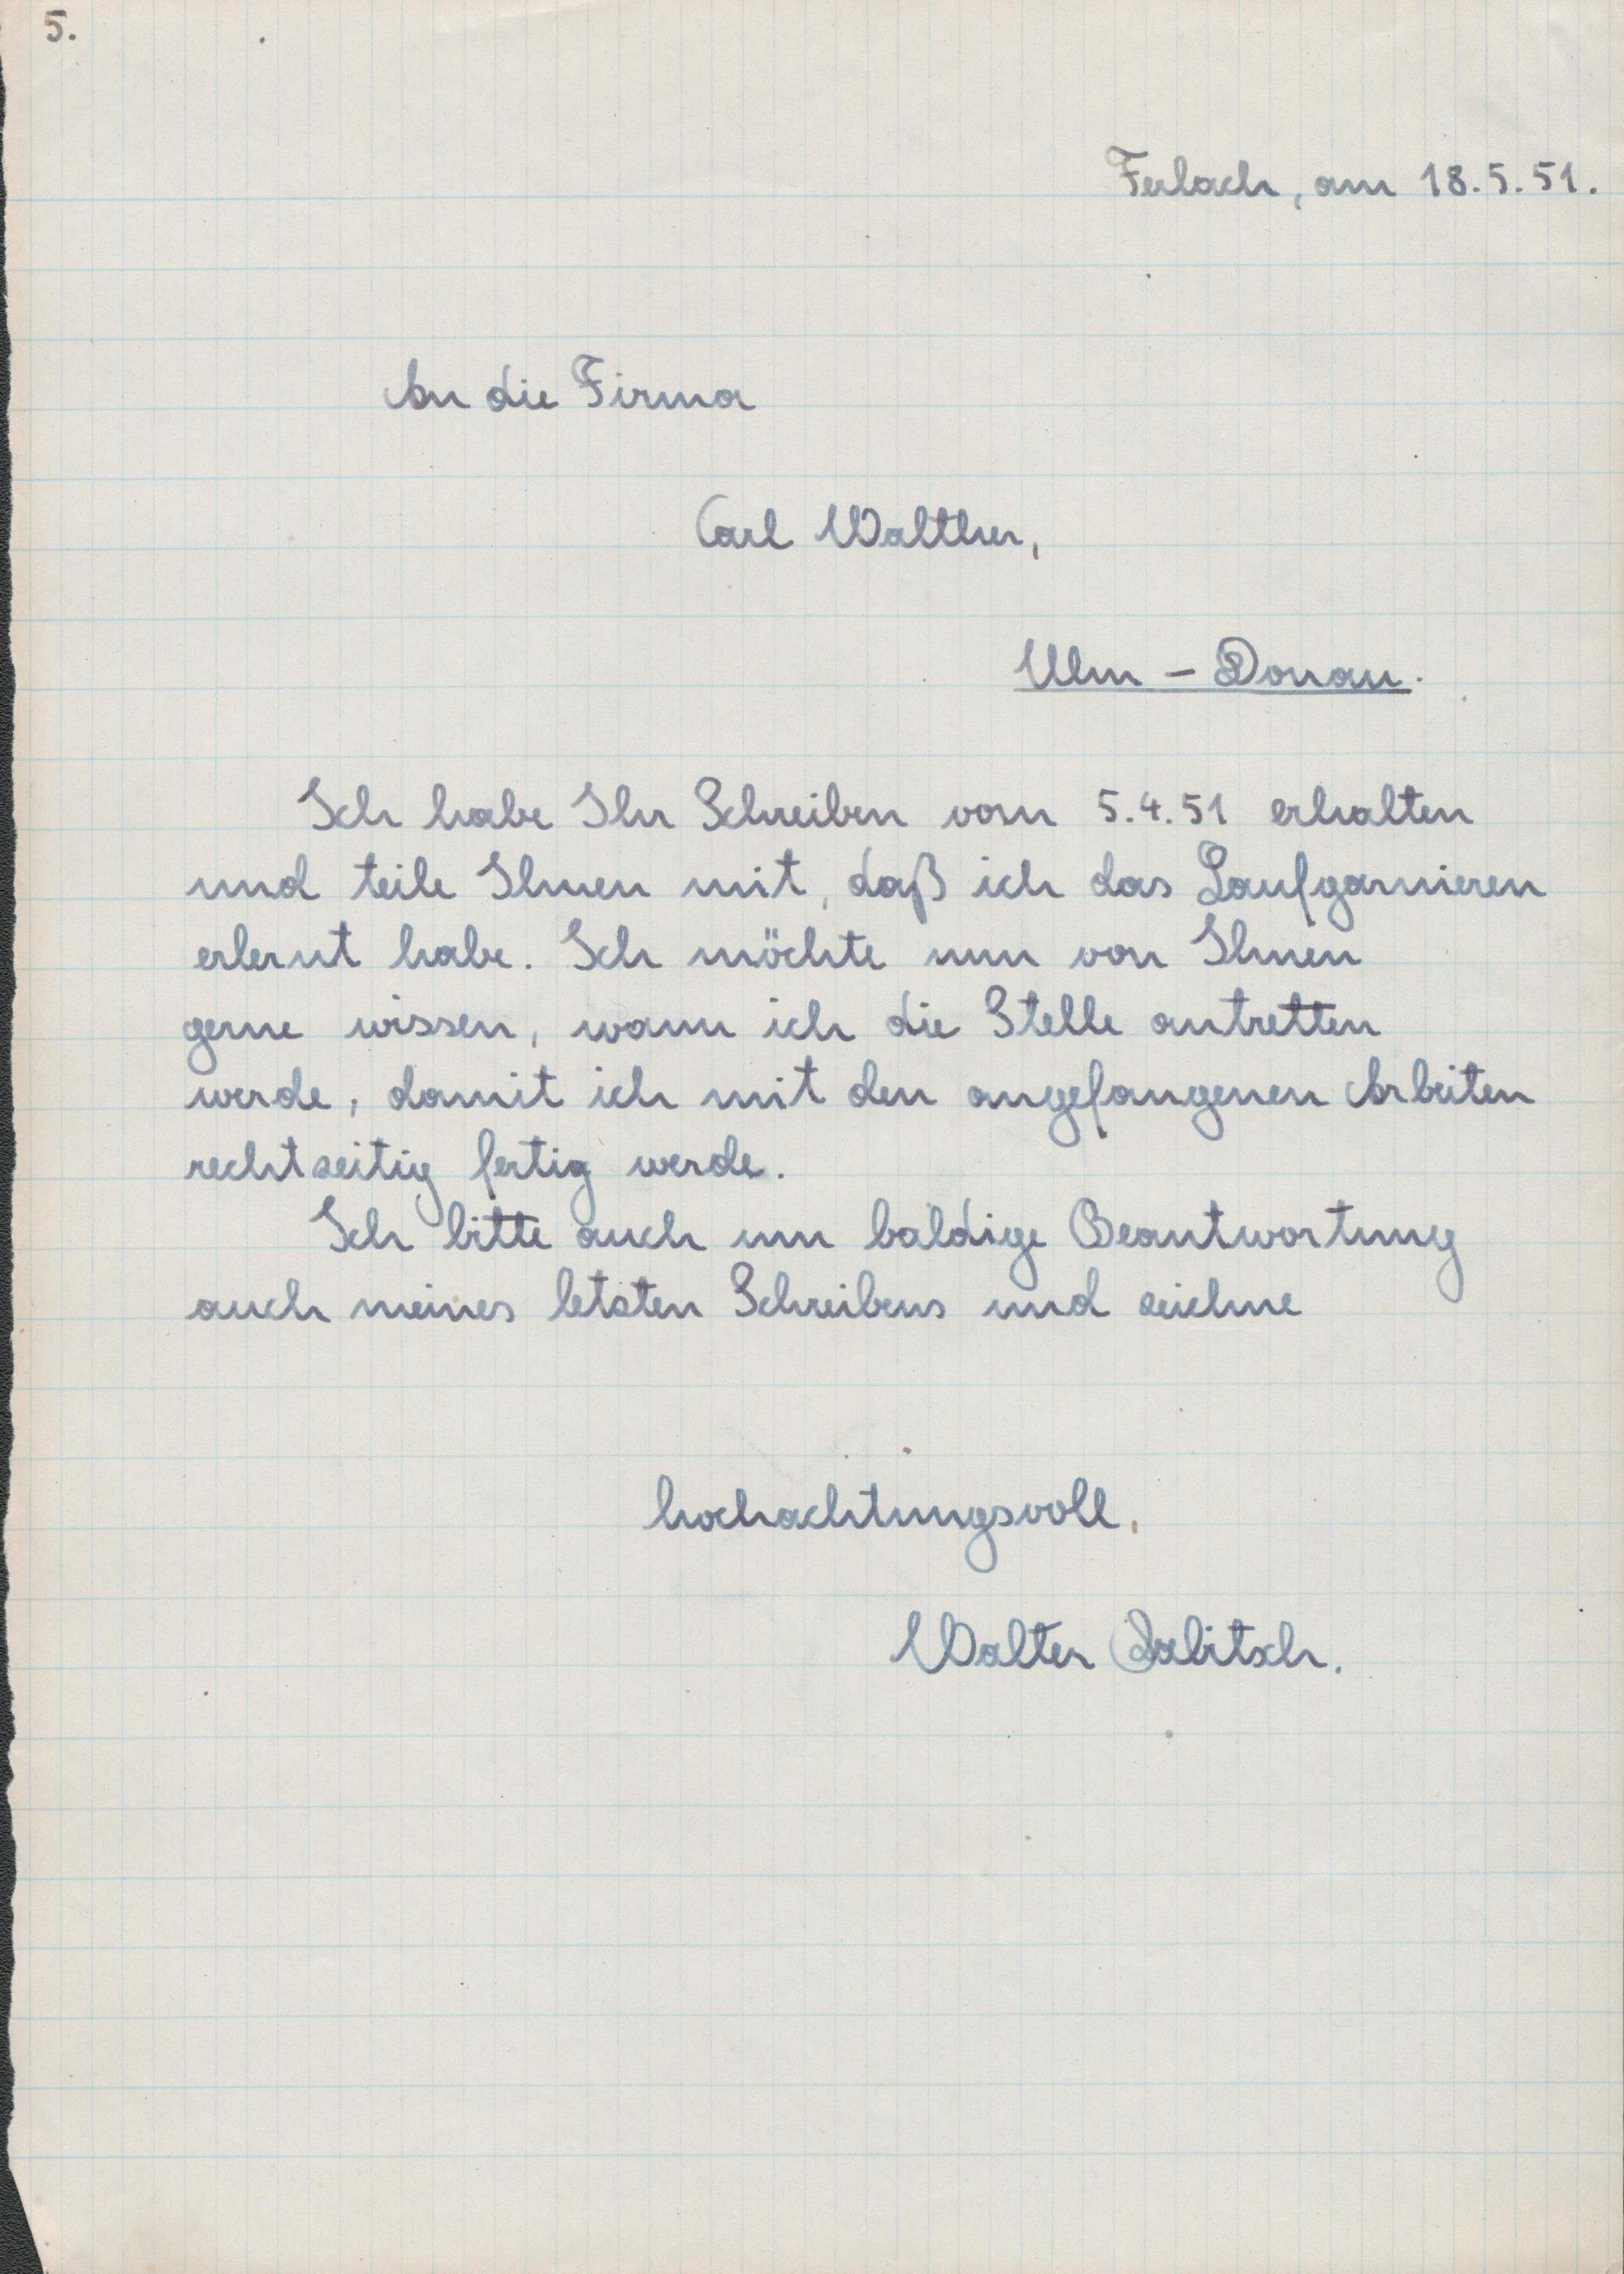 5.
Ferlach, am 18.5.51.
An die Firma
Carl Walther,
Ulm - Donau.
Ich habe Ihr Schreiben vom 5.4.51 erhalten
und teile Ihnen mit, daß ich das Laufgarnieren
erlernt habe. Ich möchte nun von Ihnen
gerne wissen, wann ich die Stelle antretten
werde, damit ich mit den angefangenen Arbeiten
rechtzeitig fertig werde.
Ich bitte auch um baldige Beantwortung
auch meines letzten Schreibens und zeichne
hochachtungsvoll,
Walter